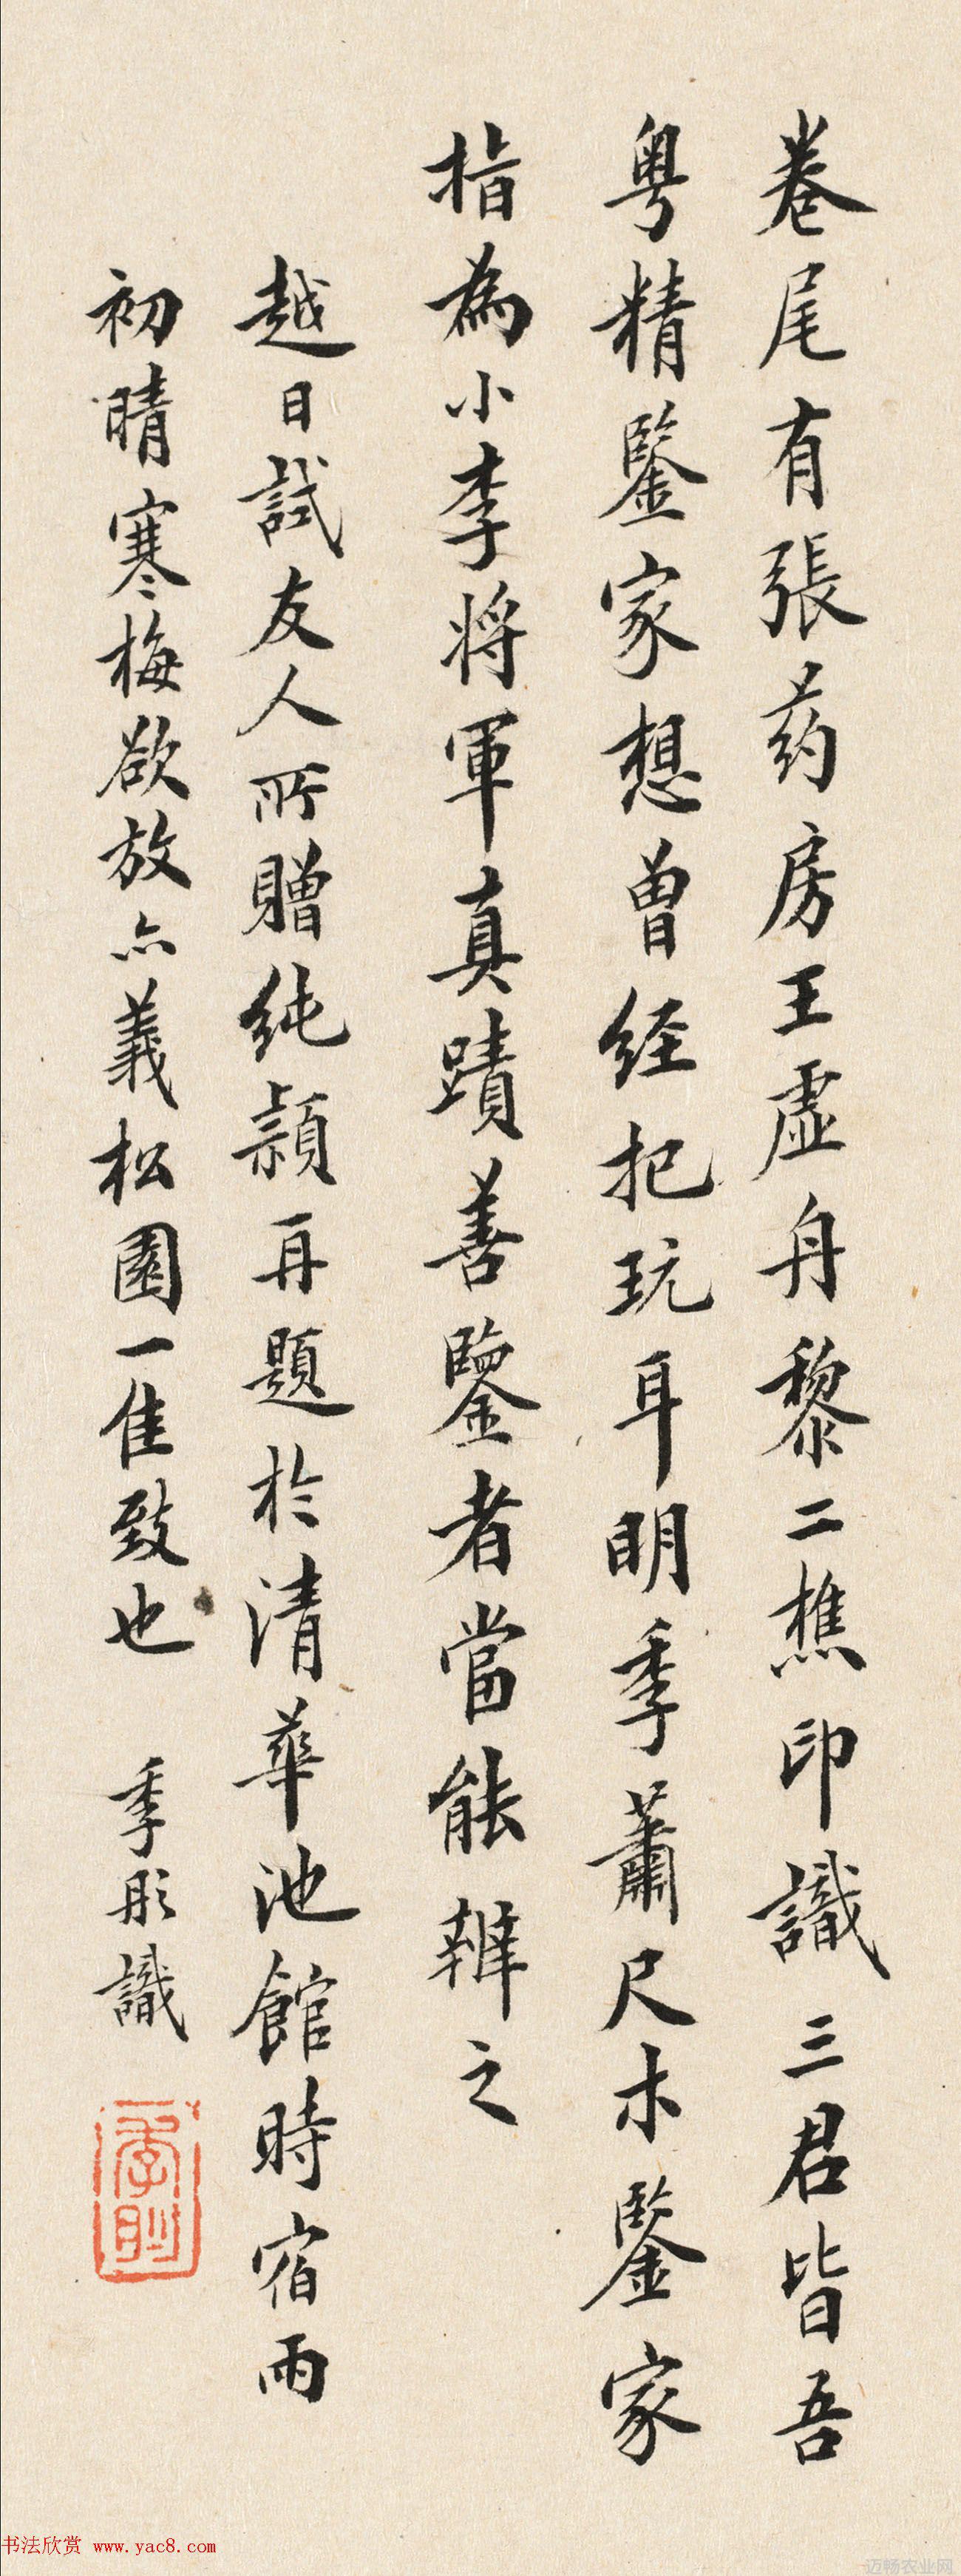 卷尾有張药房王虛舟黎二樵印識三君皆吾
粵精鑒家想曾經把玩耳明季蕭尺木鑒家
指為小李将軍真蹟善鑒者當能辨之
越日試友人所贈純穎再題於清華池館時宿雨
初晴寒梅欲放亦義松園一佳致也 季彤識
季彤
书法欣赏 www.yac8.com
迈畅农业网